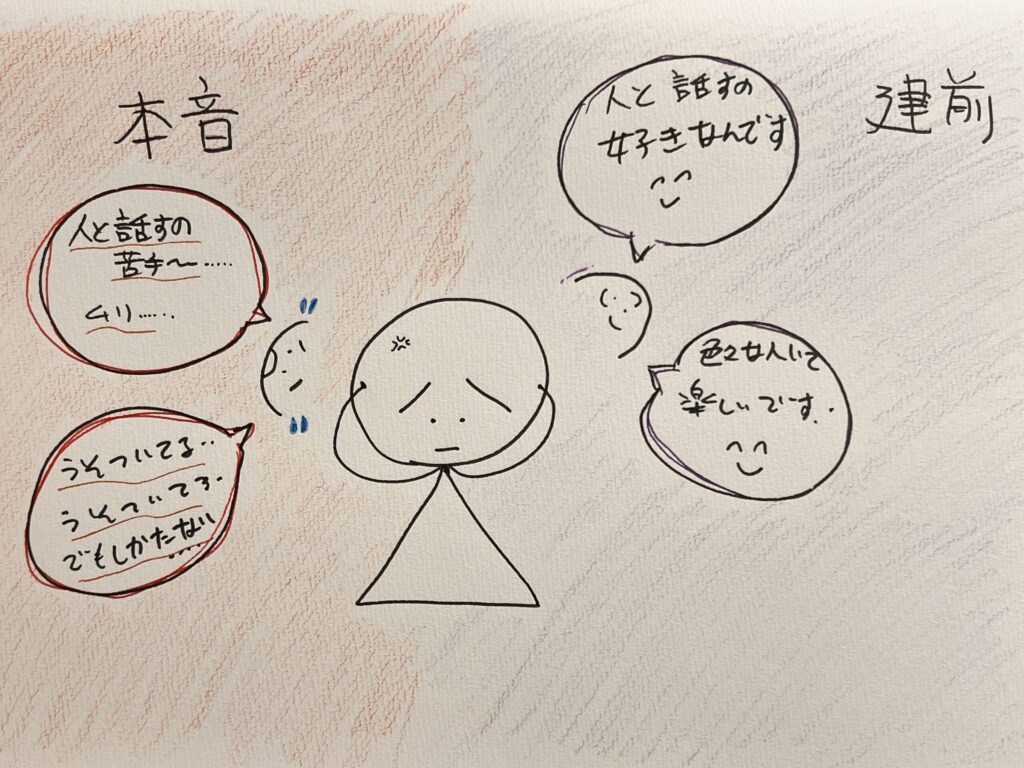 本音
人と話すの
苦手〜……
ムリ……
うそついてる..
うそついてる.
でもしかたない
....
建前
人と話すの
好きなんです
色々な人いて
楽しいです..